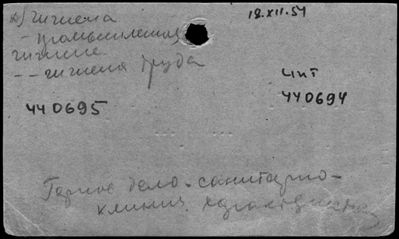 а) гигиена
18.XII.51
- промышленная
гигиене
-- гигиена труда
чит
440695
440694
Горное дело - санитарно-
клинич. характеристика